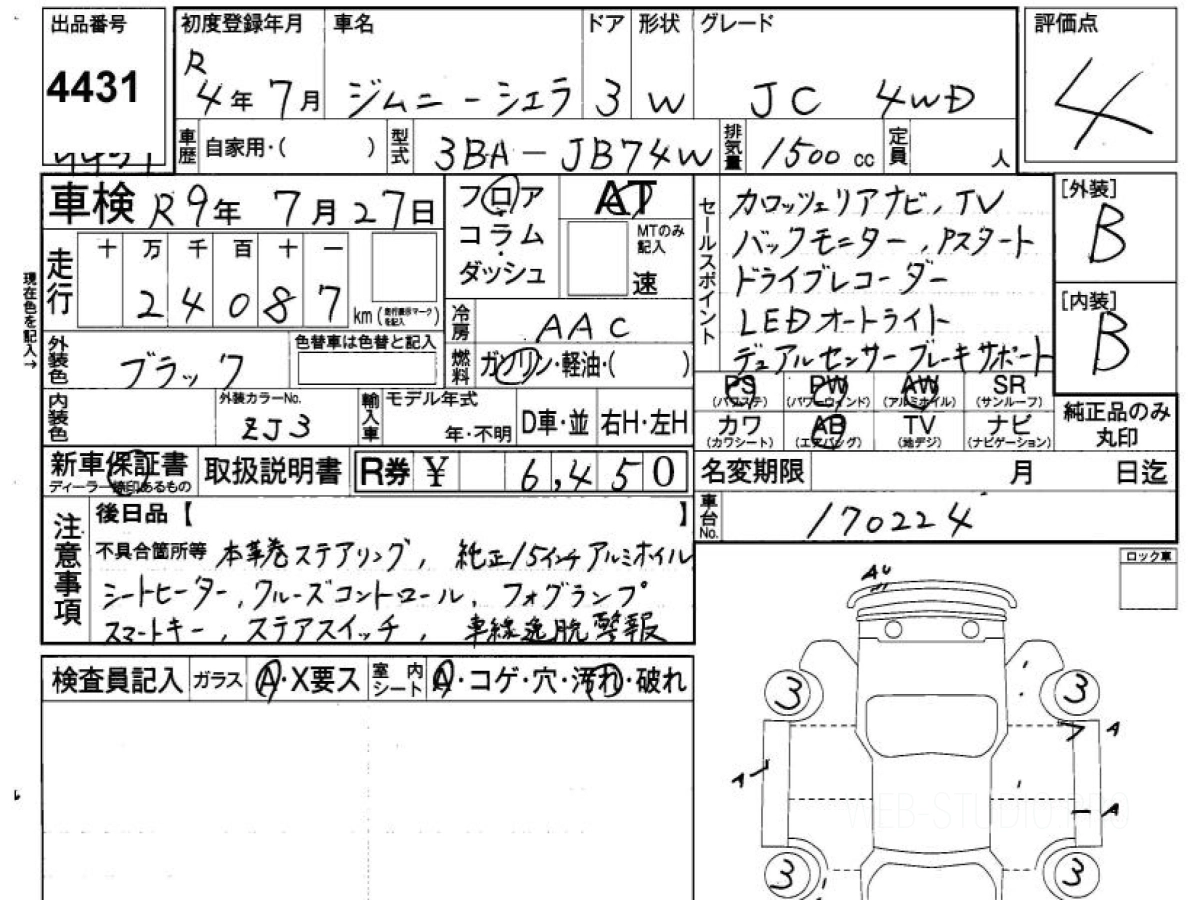 出品番号 4431
初度登録年月 R4年7月
車名 ジムニーシエラ
ドア 3
形状 W
グレード JC 4WD
評価点 4
車歴 自家用・( )
型式 3BA-JB74W
排気量 1500cc
定員 人
車検 R9年7月27日
フロア コラム ダッシュ
AT
MTのみ記入 速
走行 十 万 千 百 十 一
24087 km (走行表示マークを記入)
現在色を記入→
冷房 AAC
燃料 ガソリン・軽油・( )
外装色 ブラック
色替車は色替と記入
内装色
外装カラーNo. ZJ3
輸入車 モデル年式 年・不明
D車・並 右H・左H
新車保証書 ディーラー捺印あるもの
取扱説明書
R券 ¥ 6,450
セールスポイント
カロッツェリアナビ、TV
バックモニター、Pスタート
ドライブレコーダー
LEDオートライト
デュアルセンサーブレーキサポート
[外装] B
[内装] B
PS (パワステ) PW (パワーウィンド) AW (アルミホイル) SR (サンルーフ)
カワ (カワシート) AB (エアバッグ) TV (地デジ) ナビ (ナビゲーション)
純正品のみ
丸印
名変期限 月 日迄
車台No. 170224
注意事項
後日品【 】
不具合箇所等 本革巻ステアリング、純正15インチアルミホイル
シートヒーター、クルーズコントロール、フォグランプ
スマートキー、ステアスイッチ、車線逸脱警報
検査員記入 ガラス A・X要ス
室内シート A・コゲ・穴・汚れ・破れ
ロック車
AU
3 3
A
A
A
WEB-STUDIO.PRO
3 3